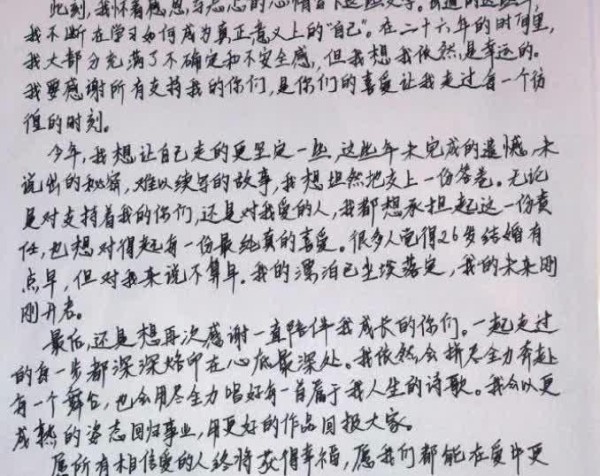 此刻,我怀着感恩,与忐忑的心情写下这些文字。
我不断在学习如何成为真正意义上的"自己"。在二十六年的时间里,
我大部分充满了不确定和不安全感,但我想我依然是幸运的。
我要感谢所有支持我的你们,是你们的喜爱让我走过每一个彷
徨的时刻。
今年,我想让自己走的更坚定一些,这些年未完成的遗憾,未
说出的秘密,难以续写的故事,我想坦然把交上一份答卷。无论
是对支持着我的你们,还是对我爱的人,我都想承担起这一份责
任,也想对得起每一份最纯真的喜爱。很多人觉得26岁结婚有
点早,但对我来说不算早。我的漂泊已尘埃落定,我的未来刚
刚开启。
最后,还是想再次感谢一直陪伴我成长的你们。一起走过
的每一步都深深烙印在心底最深处。我依然会拼尽全力奔赴
每一个舞台,也会用尽全力唱好每一首属于我人生的诗歌。我会以更
成熟的姿态回归事业,用更好的作品回报大家。
愿所有相信爱的人终将获得幸福,愿我们都能在爱中更